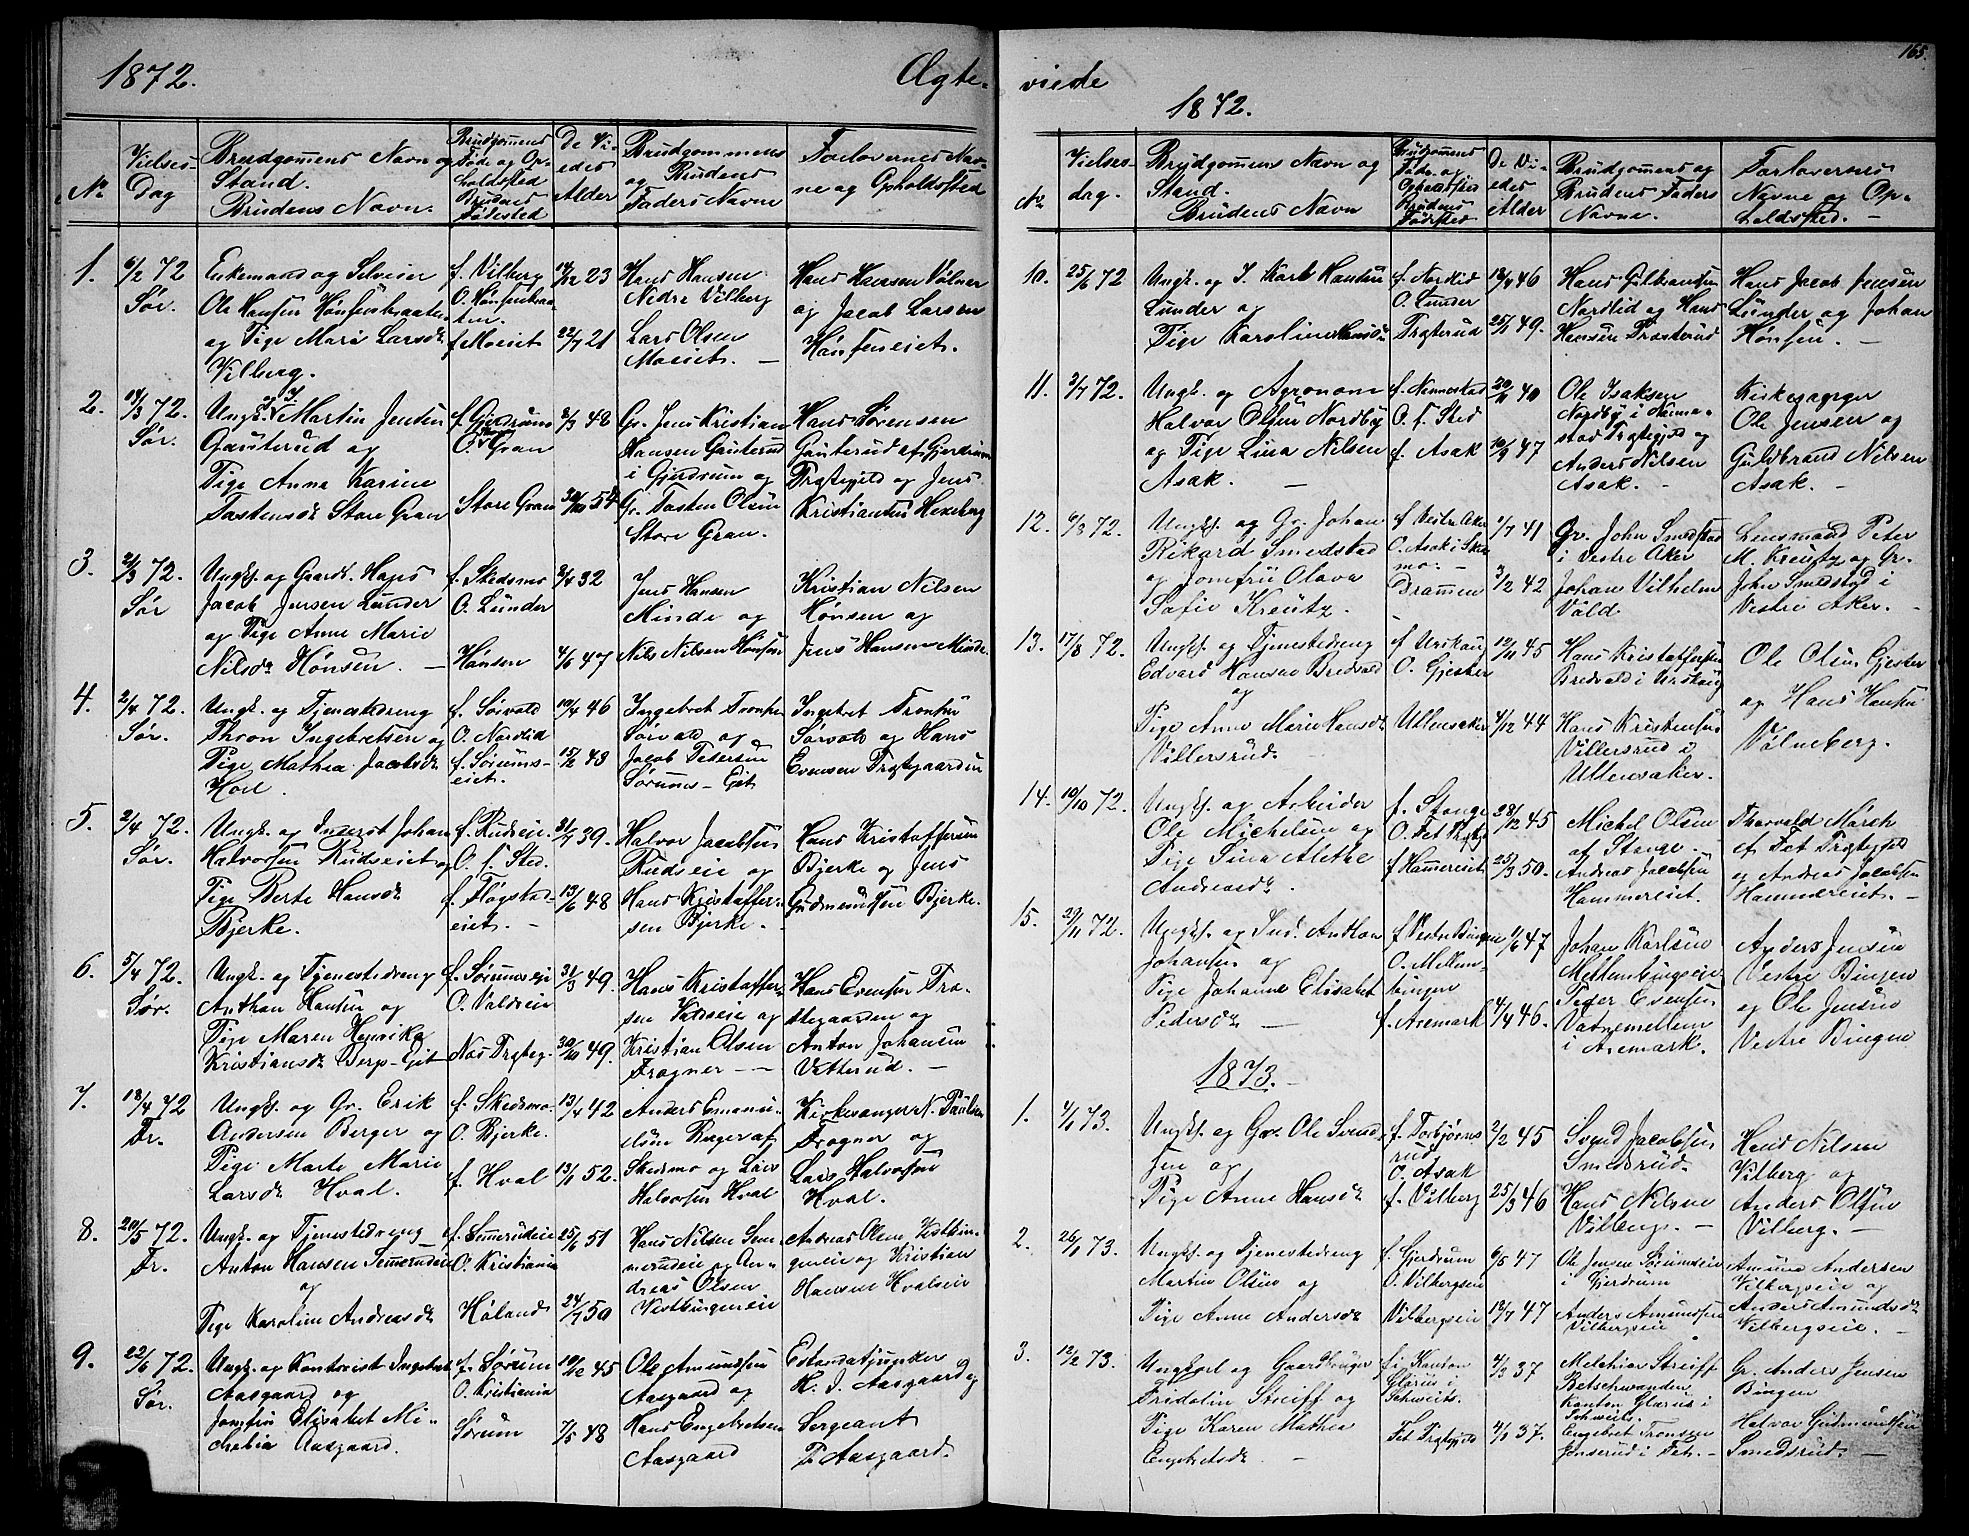 1872.
Ægte-
No
Vielses-
Dag
Brudgommens Navn og
Stand.
Brudens Navn.
Brudgommens
Føde og Op-
holdssted
Brudens
Fødested
De Vi-
edes
Alder
Brudgommens
og Brudens
Faders Navne
Forlovernes Nav-
ne og Opholdssted
1.
6/2 72
Sør.
Enkemand og Selveier
Ole Hansen Hønsenbraaten
og Pige Mari Larsdr
Vilberg.
f. Vilberg
O. Hønsenbraa-
ten.
f. Moeiet
14/12 23
22/7 21
Hans Hansen
Nedre Vilberg
Lars Olsen
Moeiet. —
Hans Hansen Völner
og Jacob Larsen
Hønseneiet.
2.
14/3 72.
Sør.
Ungk. og J. Martin Jensen
Gauterud og
Pige Anna Karine
Tostensdr Store Gran
f. Gjerdrum
O. Gran
Store Gran
8/3 48
30/10 54
Gr. Jens Kristian
Hansen Gauterud
i Gjerdrum og
Gr. Tosten Olsen
Store Gran.
Hans Sørensen
Gauterud af Gjerdrum
Prgtgjeld og Jens
Kristiansen Hexeberg
3.
2/3 72.
Sør
Ungk. og Gaardb. Hans
Jacob Jensen Lunder
og Pige Anne Marie
Nilsdr Hønsen. —
f. Skedsmo
O. Lunder
Hønsen
2/4 32
4/6 47
Jens Hansen
Minde og
Nils Nilsen Hønsen
Kristian Nilsen
Hønsen og
Jens Hansen Minde
4.
2/4 72.
Sør.
Ungk. og Tjenestedreng
Thron Ingebretsen og
Pige Mathea Jacobsdr
Hoel.
f. Sørvald
O. Nordlid
f. Sørums-
eiet.
10/4 46
15/6 43
Ingebret Tronsen
Sørvald og
Jacob Pedersen
Sørums-Eie
Ingebret Tronsen
Sørvald og Hans
Evensen Prstegaarden
5.
2/4 72.
Sør.
Ungk. og Inderst Johan
Halvorsen Rudseiet og
Pige Berte Hansdr
Bjerke.
f. Rudseie.
O. s. Sted.
f. Flogstad-
eiet. —
31/7 39.
13/6 48
Halvor Jacobsen
Rudseie og
Hans Kristoffer-
sen Bjerke. —
Hans Kristoffersen
Bjerke og Jens
Gudmundsen Bjerke.
6.
5/4 72.
Sør.
Ungk. og Tjenestedreng
Anthon Hansen og
Pige Maren Henrika
Kristiansdr Bergs-Eit
f. Sørumseie
O. Valdseie
Næs Prgteg.
31/3 49.
30/10 49.
Hans Kristoffer-
sen Valdseie og
Kristian Olsen
Frogner — —
Hans Evensen Præ-
stegaarden og
Anton Johansen
Vetterud. —
7.
18/4 72
Fr.
Ungk. og Gr. Erik
Andersen Berger og
Pige Marte Marie
Larsdr Hval.
f. Skedsmo.
O. Bjerke.
f. Hval
13/4 42
13/1 52.
Anders Emanu-
elsen Berger af
Skedsmo og Lars
Halvorsen Hval
Kirkesanger N. Paulsen
Frogner og
Lars Halvorsen
Hval.
8.
20/5 72.
Fr.
Ungk. og Tjenestedreng
Anton Hansen Semerudeie
og
Pige Karoline Andreasdr
f. Semerudeie
O. Kristiania
Høland
25/6 51
24/7 50
Hans Nilsen Sem-
merudeie og An-
dreas Olsen
Vestbingeneie
Andreas Olsen Vestbin-
geneie og Kristian
Hansen Hvalseie
9.
22/6 72.
Sør.
Ungk. og Kontorist Ingebret
Aasgaard og
Jomfru Elisabet Mi-
chobia Aasgaard.
f. Sørum
O. Kristiania
Sørum
10/12 45
7/5 48
Ole Amundsen
Aasgaard og
Hans Engebretsen
Aasgaard
Estandartjunker
H. J. Aasgaard og
Sergeant
P. Aasgaard.
165.
viede
1872.
No
Vielses-
dag.
Brudgommens Navn og
Stand.
Brudens Navn
Brudgommens
Føde- og
Opholdssted
Brudens
Fødested
De Vi-
edes
Alder
Brudgommens og
Brudens Faders
Navne.
Forlovernes
Navne og Op-
holdssted. —
10.
25/6 72
Ungk. og J. Karl Hansen
Lunder og
Pige Karoline Hansdr
f. Nordlid
O. Lunder
Prgterud
13/4 46
25/1 49.
Hans Gulbransen
Nordlid og Hans
Hansen Præsterud
Hans Jacob Jensen
Lunder og Johan
Hønsen. —
11.
2/7 72.
Ungk. og Agronom
Halvor Olsen Nordby
og Pige Lina Nilsen
Asak. —
f. Nannestad
O. s. Sted
f. Asak
20/11 40
10/9 47
Ole Isaksen
Nordby i Nanne-
stad Prgtegjeld og
Anders Nilsen
Asak. —
Kirkesanger
Ole Jensen og
Guldbrand Nilsen
Asak. —
12.
6/8 72.
Ungk. og Gr. Johan
Rikard Smedstad
og Jomfru Olava
Sofie Kreutz.
f. Vestre Aker
O. Asak i Skeds-
mo. —
Drammen
1/7 41
3/12 42
Gr. John Smedstad
i Vestre Aker
Johan Vilhelm
Vold.
Lensmand Peter
M. Kreutz og Gr.
John Smedstad i
Vestre Aker. —
13.
17/8 72.
Ungk. og Tjenestedreng
Edvard Hansen Bredvold
og
Pige Anne Marie Hansdr
Villersrud.
f. Urskoug
O. Gjester
Ullensaker
12/11 45
4/12 44
Hans Kristoffersen
Bredvold i Urskoug
Hans Kristensen
Villersrud i
Ullensaker.
Ole Olsen Gjester
og Hans Hansen
Völneberg.
14.
10/10 72.
Ungk. og Arbeider
Ole Michelsen og
Pige Lina Alethe
Andreasdr.
f. Stange
O. Fet Prgtgj
f. Hammereiet
28/12 45
25/3 50.
Michel Olsen
af Stange. —
Andreas Jacobsen
Hammereiet.
Thorvald Marsk
af Fet Prgtegjeld
og Andreas Jacobsen
Hammereiet. —
15.
29/11 72.
Ungk. og Ind. Anthon
Johansen og
Pige Johanne Elisabet
Pedersdr —
f. Vestre Bingen
O. Mellem-
bingen
f. Aremark
11/6 47
4/4 46.
Johan Karlsen
Mellembingseie
Peder Evensen
Vatnemellem
i Aremark.
Anders Jensen
Vestre Bingen
og Ole Jensen
Vestre Bingen
1873. —
1.
4/1 73.
Ungk. og Gr. Ole Svend-
sen og
Pige Anne Hansdr
f. Torbjørns-
rud
O. Asak
f. Vilberg
2/2 45
25/3 46
Svend Jacobsen
Smedsrud.
Hans Nilsen
Vilberg. —
Hans Nilsen
Vilberg og
Anders Olsen
Vilberg. —
2.
26/1 73.
Ungk. og Tjenestedreng
Martin Olsen og
Pige Anne Andersdr
f. Gjerdrum
O. Vilbergseie
Vilbergseie
6/5 47
12/7 47
Ole Jensen Sørumseie
i Gjerdrum
Anders Amundsen
Vilbergseie
Amund Andersen
Vilbergseie og
Anders Amundsen
Vilbergseie. —
3.
12/2 73.
Ungkarl og Gaardbruger
Fridolin Streiff og
Pige Karen Mathea
Engebretsdr —
f. i Kanton
Glarus i
Schweits.
Fet Prgtgjeld
4/3 37
4/1 37.
Melchior Streiff
Betschwanden
Kanton Glarus i
Schweits.
Engebret Tronsen
Jenserud i Fet. —
Gr. Anders Jensen
Bingen
Halvor Gudmundsen
Smedsrud. —